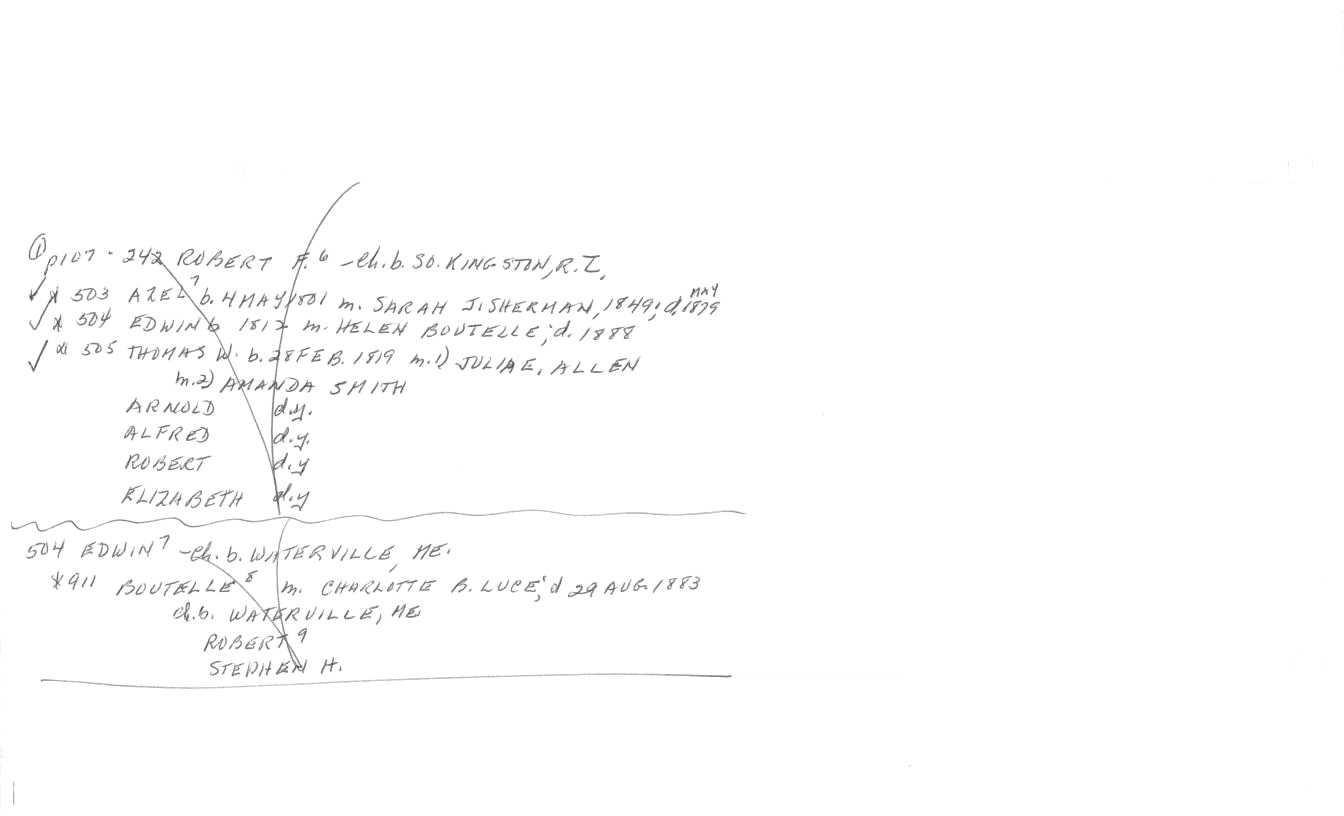 ① p107 - 242 ROBERT F.⁶ - Ch. b. SO. KINGSTON, R.I.
✓ * 503 AZEL⁷ b. 4 MAY 1801 m. SARAH J. SHERMAN, 1849; d. MAY 1879
✓ * 504 EDWIN b 1812 m. HELEN BOUTELLE; d. 1888
✓ * 505 THOMAS W. b. 28 FEB. 1819 m. 1) JULIA E. ALLEN
m. 2) AMANDA SMITH
ARNOLD d.y.
ALFRED d.y.
ROBERT d.y
ELIZABETH d.y
504 EDWIN⁷ - Ch. b. WATERVILLE, ME.
* 911 BOUTELLE⁸ m. CHARLOTTE B. LUCE; d 29 AUG. 1883
Ch. b. WATERVILLE, ME
ROBERT⁹
STEPHEN H.